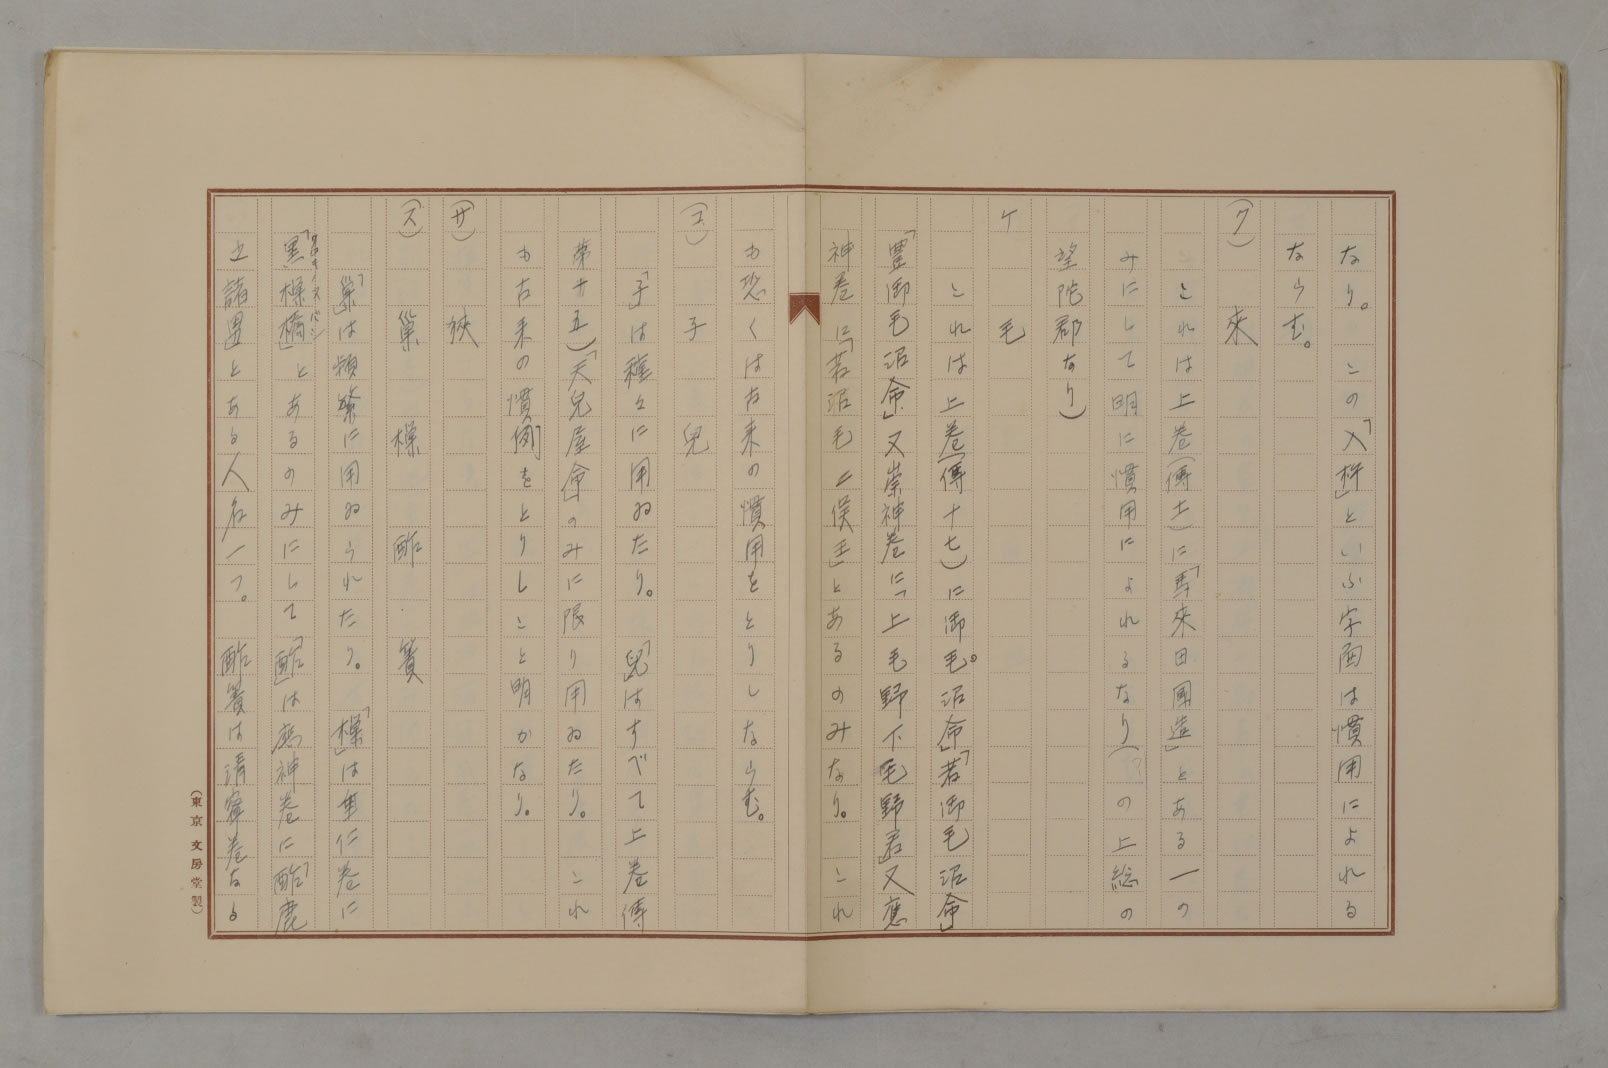 なり。この「入杵」といふ字面は慣用によれる
ならむ。
(ク)　來
これは上巻(傳十)に「馬來田國造」とある一の
みにして明に慣用によれるなり(の上総の
望陀郡なり)
ケ　毛
これは上巻(傳十七)に御毛。沼命」「若御毛沼命」
「豊御毛沼命」又崇神巻に「上毛野下毛野君」又應
神巻に「若沼毛二俣王」とあるのみなり。これ
も恐くは古来の慣用をとりしならむ。
(コ)　子　兒
「子」は種々に用ゐたり。「兒」はすべて上巻傳
第十五)「天兒屋命」のみに限り用ゐたり。これ
も古来の慣例をとりしこと明かなり。
(サ)　狹
(ス)　巢　樔　酢　簀
「巢」は頻繁に用ゐられたり。「樔」は垂仁巻に
「黒樔橋」とあるのみにして「酢」は應神巻に「酢鹿
クロキノスバシ
之諸男」とある人名一つ。酢簀は清寧巻なる
(東京文房堂製)